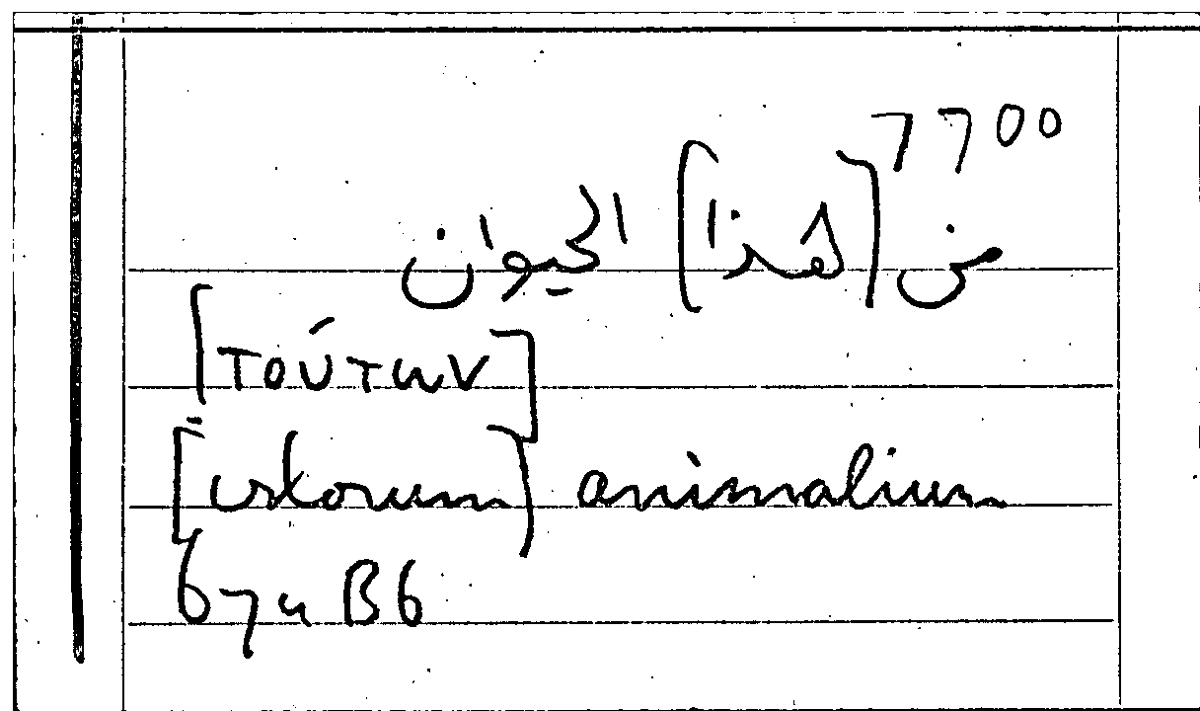 7700
من [هذا] الحيوان
[τούτων]
[istorum] animalium
674 B6